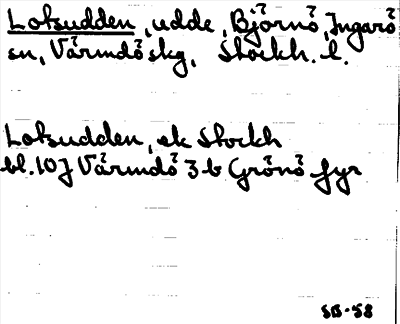 Lotsudden, udde, Björnö, Ingarö
sn, Värmdö skg, Stockh. l.
Lotsudden, ek Stockh
bl. 10J Värmdö 3 b Grönö fyr
SB-58